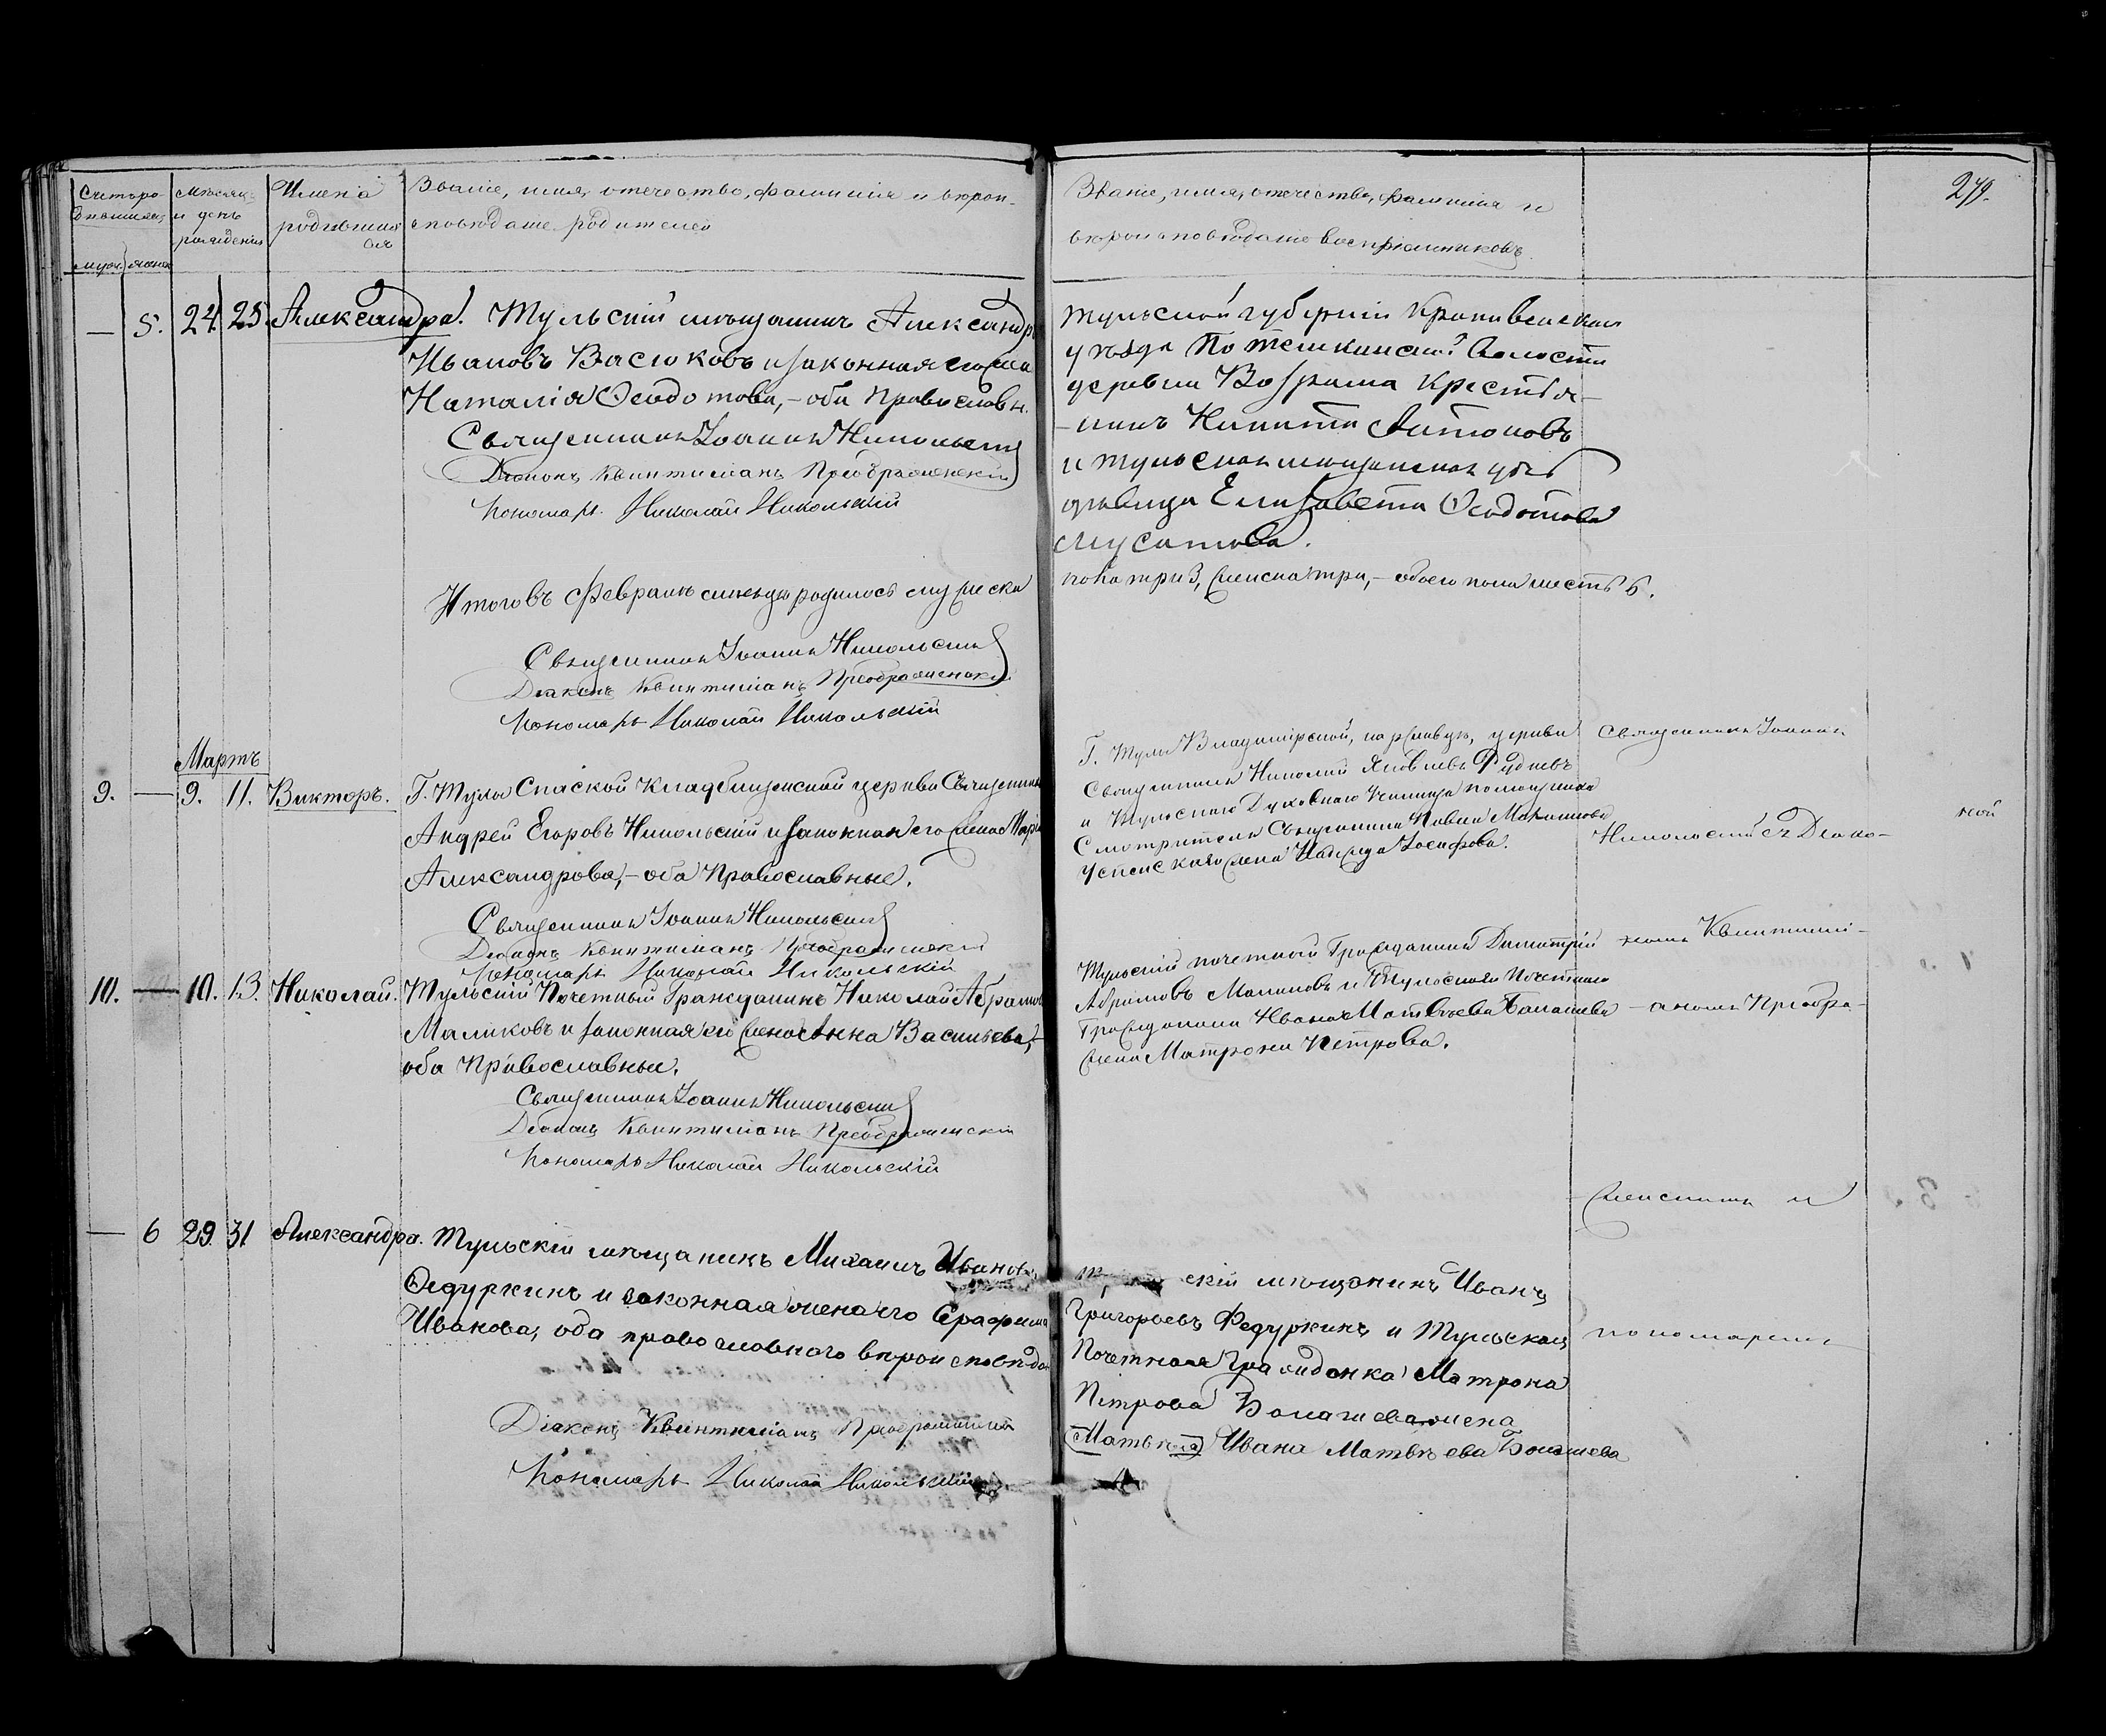 Счетъ ро-
дившихся
муж. женск.
Мѣсяцъ
и день
рожденія
Имена
родивших
ся
Званіе, имя, отечество, фамилія и вѣрои-
сповѣданіе родителей
— 5. 24. 25. Александра. Тульскій мѣщанинъ Александръ
Ивановъ Васюковъ и законная его жена
Наталія Ѳеодотова, – оба Православн.
Священникъ Іоаннъ Никольскій
Діаконъ Квинтиліанъ Преображенскій
Пономарь Николай Никольскій
Итого въ Февралѣ мѣсяцѣ родилось мужеска
Священникъ Іоаннъ Никольскій
Діаконъ Квинтиліанъ Преображенскій
Пономарь Николай Никольскій
Мартъ
9. — 9. 11. Викторъ. Г. Тулы Спаской Кладбищенской церкви Священникъ
Андрей Егоровъ Никольскій и законная его жена Марія
Александрова, – оба Православные.
Священникъ Іоаннъ Никольскій
Діаконъ Квинтиліанъ Преображенскій
Пономарь Николай Никольскій
10. — 10. 13. Николай. Тульскій Почетный Гражданинъ Николай Абрамов
Маликовъ и законная его жена Анна Васильева, –
оба Православные.
Священникъ Іоаннъ Никольскій
Діаконъ Квинтиліанъ Преображенскій
Пономарь Николай Никольскій
— 6 29. 31 Александра. Тульскій мѣщанинъ Михаилъ Иванов
Ѳедуркинъ и законная жена его Серафима
Иванова, оба православнаго вѣроисповѣда
Діаконъ Квинтиліанъ Преображенскій
Пономарь Николай Никольскій
Званіе, имя, отечество, фамилія и
вѣроисповѣданіе воспріемниковъ.
279.
Тульской губерніи Крапивенскаго
уѣзда Потемкинской волости
деревни Крестья-
-нинъ Никита Антоновъ
и Тульская мѣщанская
дѣвица Елисавета Ѳеодотова
Мусатова.
пола три 3, женска три, – обоего пола шесть 6.
Г. Тулы Владимірской, на ржавцѣ, церкви
Священникъ Николай Яковлевъ Рудневъ
и Тульскаго Духовнаго Училища помощника
Смотрителя Священника Павла
Успенскаго жена Надежда Іосифова.
Священникъ Іоаннъ
Никольскій съ Діако-
ной
Тульскій почетный Гражданинъ Димитрій
Абрамовъ Маликовъ и Тульскаго Почетнаго
Гражданина Ивана Матвѣева Баташева
жена Матрона Петрова.
номъ Квинтилі-
-аномъ Преобра-
женскимъ и
пономаремъ
Тульскій мѣщанинъ Иванъ
Григорьевъ Федуркинъ и Тульская
Почетная Гражданка Матрона
Петрова Баташева жена
Ивана Матвѣева Баташева